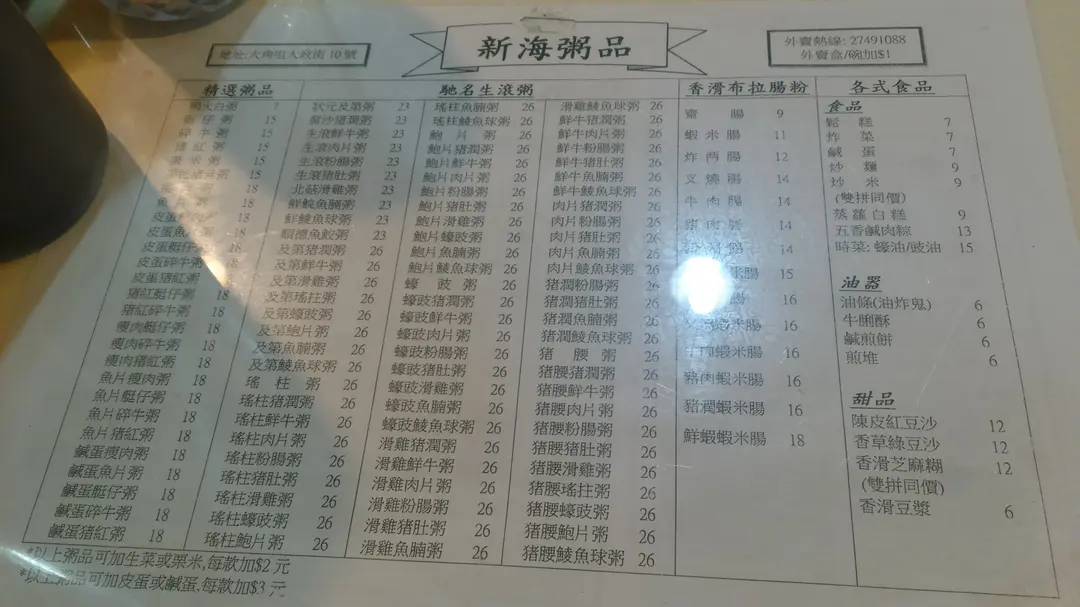 新海粥品
地址:大角咀大政街 10 號
外賣熱線: 27491088
外賣盒/碗加$1
精選粥品
明火白粥 7
艇仔粥 15
碎牛粥 15
猪紅粥 15
粟米粥 15
15
18
魚片粥 18
皮蛋瘦肉粥 18
皮蛋魚片粥 18
皮蛋艇仔粥 18
皮蛋碎牛粥 18
皮蛋猪紅粥 18
猪紅艇仔粥 18
猪紅碎牛粥 18
瘦肉艇仔粥 18
瘦肉碎牛粥 18
瘦肉猪紅粥 18
魚片瘦肉粥 18
魚片艇仔粥 18
魚片碎牛粥 18
魚片猪紅粥 18
鹹蛋瘦肉粥 18
鹹蛋魚片粥 18
鹹蛋艇仔粥 18
鹹蛋碎牛粥 18
鹹蛋猪紅粥 18
馳名生滾粥
狀元及第粥 23
猪潤粥 23
生滾鮮牛粥 23
生滾肉片粥 23
生滾粉腸粥 23
生滾猪肚粥 23
北菇滑雞粥 23
鮮鯇魚腩粥 23
鮮鯪魚球粥 23
順德魚餃粥 23
及第猪潤粥 26
及第鮮牛粥 26
及第滑雞粥 26
及第瑤柱粥 26
及第蠔豉粥 26
及第鮑片粥 26
及第魚腩粥 26
及第鯪魚球粥 26
瑤柱粥 26
瑤柱猪潤粥 26
瑤柱鮮牛粥 26
瑤柱肉片粥 26
瑤柱粉腸粥 26
瑤柱猪肚粥 26
瑤柱滑雞粥 26
瑤柱蠔豉粥 26
瑤柱鮑片粥 26
瑤柱魚腩粥 26
瑤柱鯪魚球粥 26
鮑片粥 26
鮑片猪潤粥 26
鮑片鮮牛粥 26
鮑片肉片粥 26
鮑片粉腸粥 26
鮑片猪肚粥 26
鮑片滑雞粥 26
鮑片蠔豉粥 26
鮑片魚腩粥 26
鮑片鯪魚球粥 26
蠔豉粥 26
蠔豉猪潤粥 26
蠔豉鮮牛粥 26
蠔豉肉片粥 26
蠔豉粉腸粥 26
蠔豉猪肚粥 26
蠔豉滑雞粥 26
蠔豉魚腩粥 26
蠔豉鯪魚球粥 26
滑雞猪潤粥 26
滑雞鮮牛粥 26
滑雞肉片粥 26
滑雞粉腸粥 26
滑雞猪肚粥 26
滑雞魚腩粥 26
滑雞鯪魚球粥 26
鮮牛猪潤粥 26
鮮牛肉片粥 26
鮮牛粉腸粥 26
鮮牛猪肚粥 26
鮮牛魚腩粥 26
鮮牛鯪魚球粥 26
肉片猪潤粥 26
肉片粉腸粥 26
肉片猪肚粥 26
肉片魚腩粥 26
肉片鯪魚球粥 26
猪潤粉腸粥 26
猪潤猪肚粥 26
猪潤魚腩粥 26
猪潤鯪魚球粥 26
猪腰粥 26
猪腰猪潤粥 26
猪腰鮮牛粥 26
猪腰肉片粥 26
猪腰粉腸粥 26
猪腰猪肚粥 26
猪腰滑雞粥 26
猪腰瑤柱粥 26
猪腰魚腩粥 26
猪腰鮑片粥 26
猪腰鯪魚球粥 26
香滑布拉腸粉
齋腸 9
蝦米腸 11
炸両腸 12
叉燒腸 14
牛肉腸 14
豬肉腸 14
14
米腸 15
16
米腸 16
牛肉蝦米腸 16
豬肉蝦米腸 16
豬潤蝦米腸 16
鮮蝦蝦米腸 18
各式食品
食品
鬆糕 7
炸菜 7
鹹蛋 7
炒麵 9
炒米 9
(雙拼同價)
蒸蘿白糕 9
五香鹹肉粽 13
時菜: 蠔油/豉油 15
油器
油條(油炸鬼) 6
牛脷酥 6
鹹煎餅 6
煎堆 6
甜品
陳皮紅豆沙 12
香草綠豆沙 12
香滑芝麻糊 12
(雙拼同價)
香滑豆漿 6
*以上粥品可加生菜或粟米,每款加$2 元
*以上粥品可加皮蛋或鹹蛋,每款加$3 元